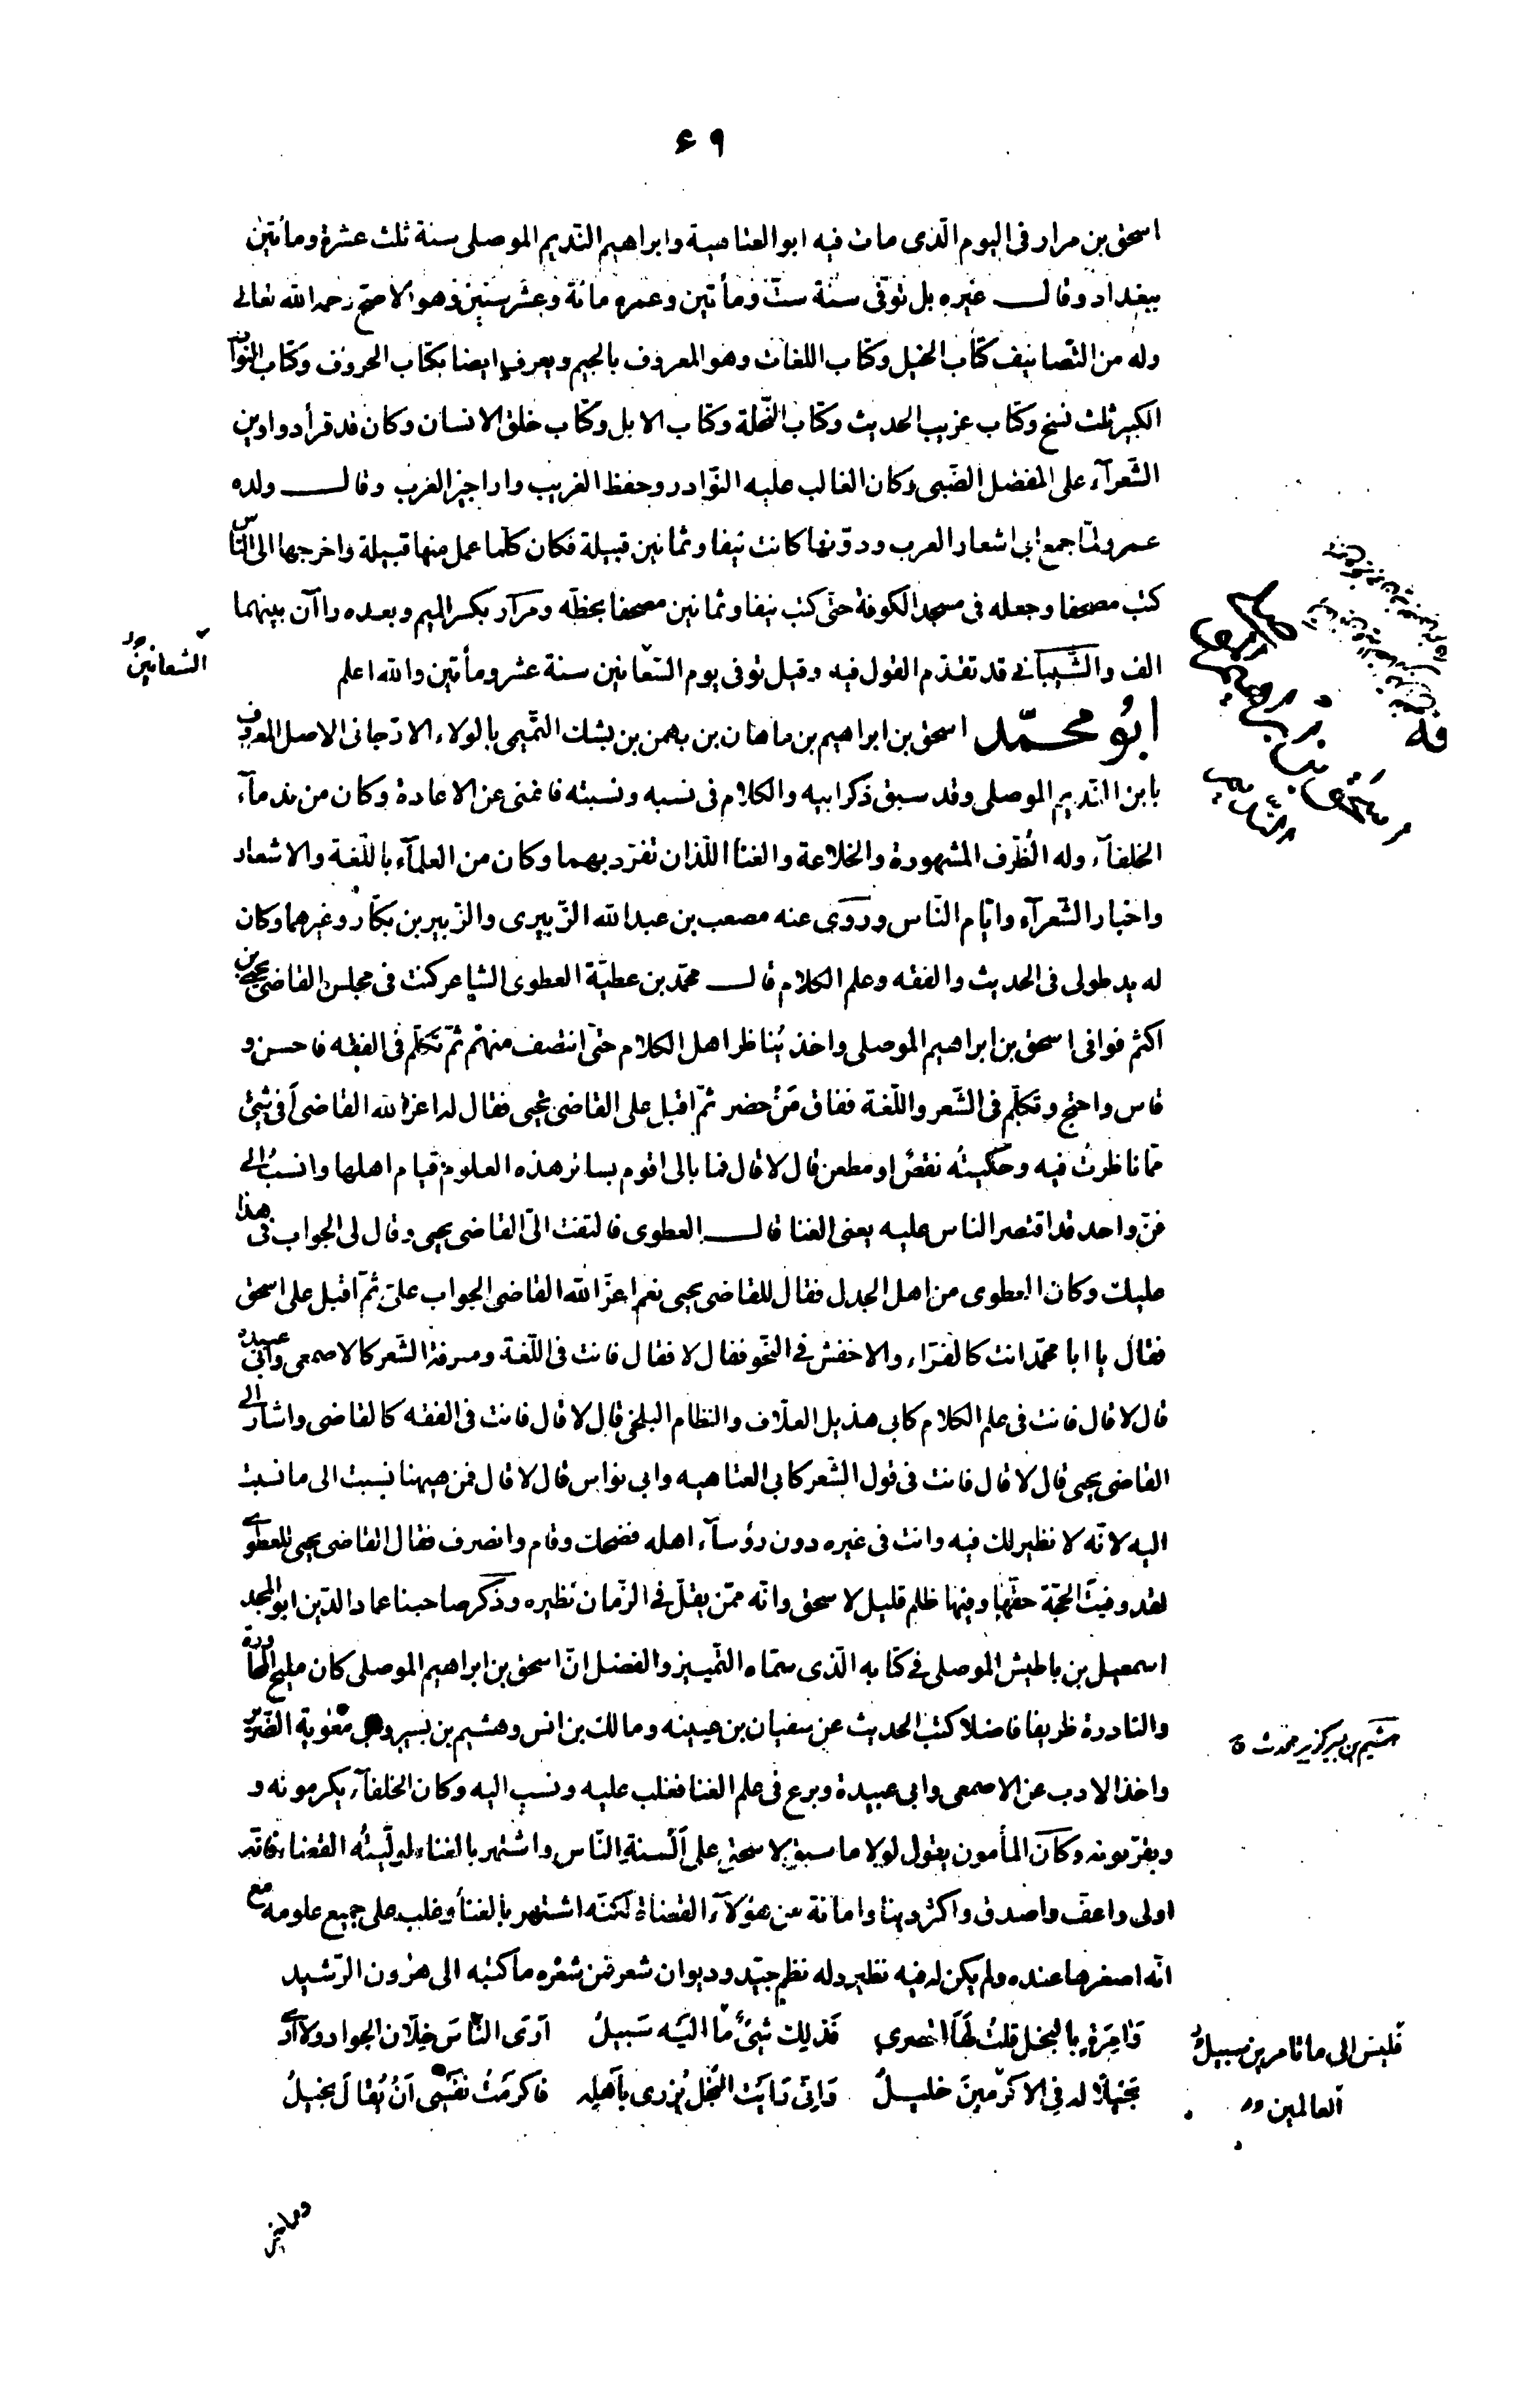 ۶۹
اسحق بن مرار فى اليوم الّذى مات فيه ابو العتاهية وابراهيم النّديم الموصلى سنة ثلث عشرة ومأتين
ببغداد وقال غيره بل توفّى سنة ستّ ومأتين وعمره مائة وعشر سنين وهو الاصحّ رحمه الله تعالى
وله من التّصانيف كتاب الخيل وكتاب اللغات وهو المعروف بالجيم ويعرف ايضا بكتاب الحروف وكتاب النوادر
الكبير ثلث نسخ وكتاب غريب الحديث وكتاب النّحلة وكتاب الابل وكتاب خلق الانسان وكان قد قرأ دواوين
الشّعرآء على المفضل الضّبى وكان الغالب عليه النّوادر وحفظ الغريب واراجيز العرب وقال ولده
عمرو لمّا جمع ابى اشعار العرب ودوّنها كانت نيفا وثمانين قبيلة فكان كلّما عمل منها قبيلة واخرجها الى النّاس
كتب مصحفا وجعله فى مسجد الكوفة حتّى كتب نيفا وثمانين مصحفا بخطّه ومرآر بكسر الميم وبعده راآن بينهما
الف والشّيبانى قد تقدّم القول فيه وقيل توفى يوم السّعانين سنة عشر ومأتين والله اعلم
الشعانين
ابُو محمّد اسحق بن ابراهيم بن ماهان بن بهمن بن بشك التّميمى بالولاء الارّجانى الاصل المعروف
بابن النّديم الموصلى وقد سبق ذكر ابيه والكلام فى نسبه ونسبته فاغنى عن الاعادة وكان من ندمآء
الخلفآء وله الظّرف المشهورة والخلاعة والغنا اللّذان تفرّد بهما وكان من العلمآء باللّغة والاشعار
واخبار الشّعرآء وايّام النّاس وروى عنه مصعب بن عبد الله الزّبيرى والزّبير بن بكّار وغيرهما وكان
له يد طولى فى الحديث والفقه وعلم الكلام قال محمّد بن عطيّة العطوى الشاعر كنت فى مجلس القاضى يحيى بن
اكثم فوافى اسحق بن ابراهيم الموصلى واخذ يُناظر اهل الكلام حتّى انتصف منهم ثمّ تكلّم فى الفقه فاحسن و
قاس واحتج وتكلّم فى الشّعر واللّغة ففاق مَنْ حضر ثمّ اقبل على القاضى يحيى فقال له اعز الله القاضى أفى شئ
ممّا ناظرتُ فيه وحكيتُه نقصٌ او مطعن قال لا قال فما بالى اقوم بسائر هذه العلوم قيام اهلها وانسب الى
فنّ واحد قد اقتصر الناس عليه يعنى الغنا قال العطوى فالتفت الىّ القاضى يحيى وقال لى الجواب فى هذا
عليك وكان العطوى من اهل الجدل فقال للقاضى يحيى نعم اعزّ الله القاضى الجواب علىّ ثمّ اقبل على اسحق
فقال يا ابا محمّد انت كالفرّاء والاخفش فى النّحو فقال لا فقال فانت فى اللّغة ومعرفة الشّعر كالاصمعى وابى عبيدة
قال لا قال فانت فى علم الكلام كابى هذيل العلّاف والنظام البلخى قال لا قال فانت فى الفقه كالقاضى واشار الى
القاضى يحيى قال لا قال فانت فى قول الشّعر كابى العتاهيه وابى نواس قال لا قال فمن ههنا نسبت الى ما نسبت
اليه لانّه لا نظير لك فيه وانت فى غيره دون رؤسآء اهله فضحك وقام وانصرف فقال القاضى يحيى للعطوى
لقد وفيتَ الحجّة حقّها وفيها ظلم قليل لاسحق وانّه ممّن يقلّ فى الزّمان نظيره وذكر صاحبنا عماد الدّين ابو المجد
اسمعيل بن باطيش الموصلى فى كتابه الّذى سمّاه التّمييز والفضل انّ اسحق بن ابراهيم الموصلى كان مليح المحاورة
والنادرة ظريفا فاضلا كتب الحديث عن سفيان بن عيينه ومالك بن انس وهشيم بن بشير وابى معٰوية الضّرير
هشيم بن بشير كزبير محدث
واخذ الادب عن الاصمعى وابى عبيدة وبرع فى علم الغنا فغلب عليه ونسب اليه وكان الخلفآء يكرمونه و
ويقرّبونه وكان المأمون يقول لولا ما سبق لاسحق على ألسنة النّاس واشتهر بالغناء لولّيتُه القضاء فانّه
اولى واعفّ واصدق واكثر دينا وامانة من هؤلآء القضاة لكنّه اشتهر بالغنا وغلب على جميع علومه مع
انّه اصغرها عنده ولم يكن له فيه نظير وله نظم جيّد وديوان شعر فمن شعره ما كتبه الى هٰرون الرّشيد
وَامِرَةٍ بالبخل قلتُ لَهَا اقصرى فَذلِك شَئٌ ما اليَه سَبيلُ اَرَى النّاسَ خِلّان الجواد ولا اَرَى
فليس الى ما تامرين سبيلُ
بَخيلًا له فى الاكرَمينَ خليلُ وَانّى رَايَت البُخل يُزرى بِاَهلِه فاكرمتُ نفسى اَنْ يُقالَ بخيلُ
العالمين